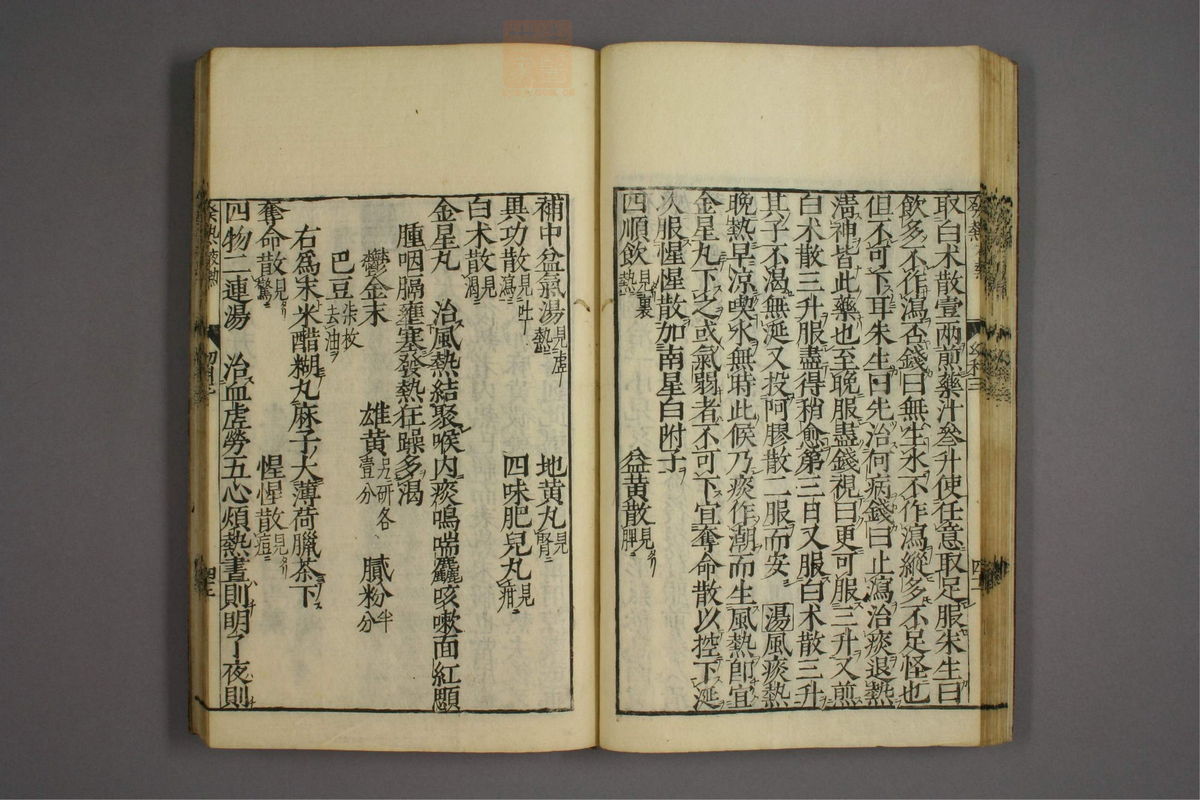 取白朮散壹兩煎藥汁叁升使任意取足服朱生曰
飲多不作瀉否錢曰無生水不作瀉縱多不足怪也
但不可下耳朱生曰先治何病錢曰止瀉治痰退熱
清神皆此藥也至晚服盡錢視曰更可服三升又煎
白朮散三升服盡得稍愈第三日又服白朮散三升
其子不渴無涎又投阿膠散二服而安 湯風痰熱
晚熱早涼喫水無時此候乃痰作潮而生風熱卽宜
金星丸下之或氣弱者不可下宜奪命散以控下涎
次服惺惺散加南星白附子
四順飲見裏熱 益黃散見脾
補中益氣湯見虛熱 地黃丸見腎
異功散見吐瀉 四味肥兒丸見疳
白朮散見渴
金星丸 治風熱結聚喉内痰鳴喘麤咳嗽面紅顋
腫咽膈壅塞發熱狂躁多渴
鬱金末 雄黃另研各壹分 膩粉半分
巴豆柒枚去油
右爲末米醋糊丸麻子大薄荷臘茶下
奪命散見驚 惺惺散見痘
四物二連湯 治血虛勞五心煩熱晝則明了夜則